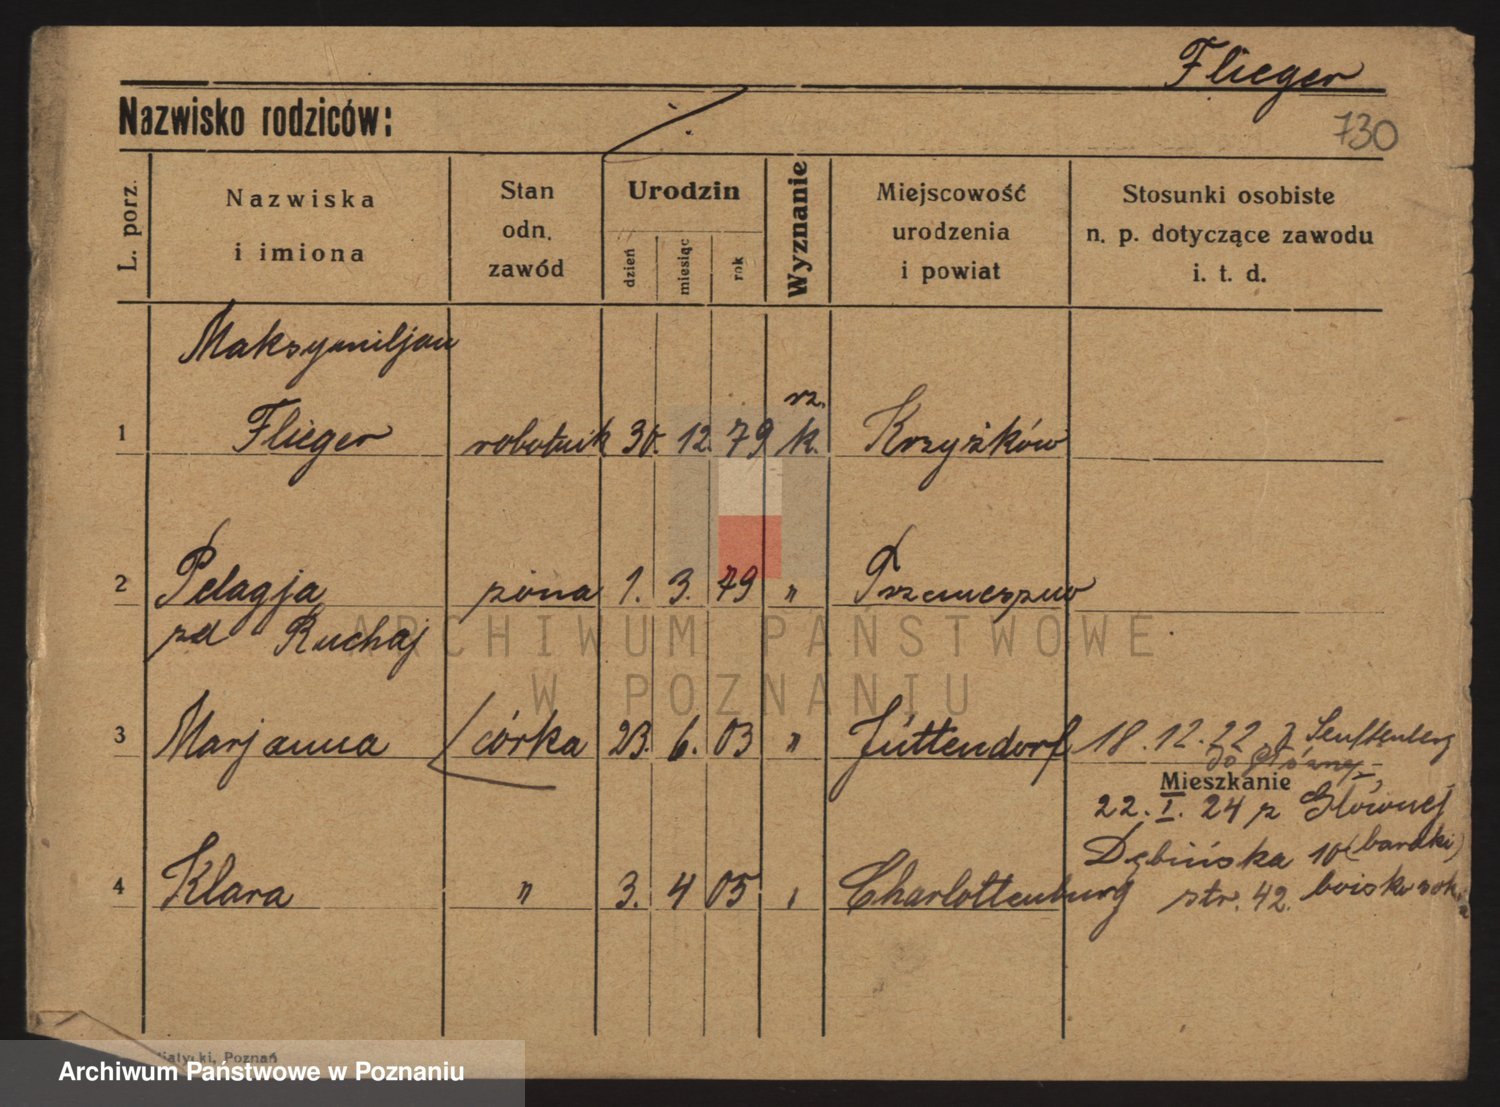 Flieger
730
Nazwisko rodziców:
L. porz.
Nazwiska
i imiona
Stan
odn.
zawód
Urodzin
dzień
miesiąc
rok
Wyznanie
Miejscowość
urodzenia
i powiat
Stosunki osobiste
n. p. dotyczące zawodu
i. t. d.
Maksymiljan
rz.
1 Flieger robotnik 30. 12. 79 k. Krzyżków
2 Pelagja żona 1. 3. 79 "
zd Ruchaj
ARCHIWUM PAŃSTWOWE
W POZNANIU
3 Marjanna córka 23. 6. 03 " Jüttendorf 18.12.22 z Senftenberg
do Głównej
Mieszkanie
22. I. 24 z Głównej
Dębińska 10 (baraki)
4 Klara " 3. 4 05 " Charlottenburg str. 42. boisko
Poznań
Archiwum Państwowe w Poznaniu